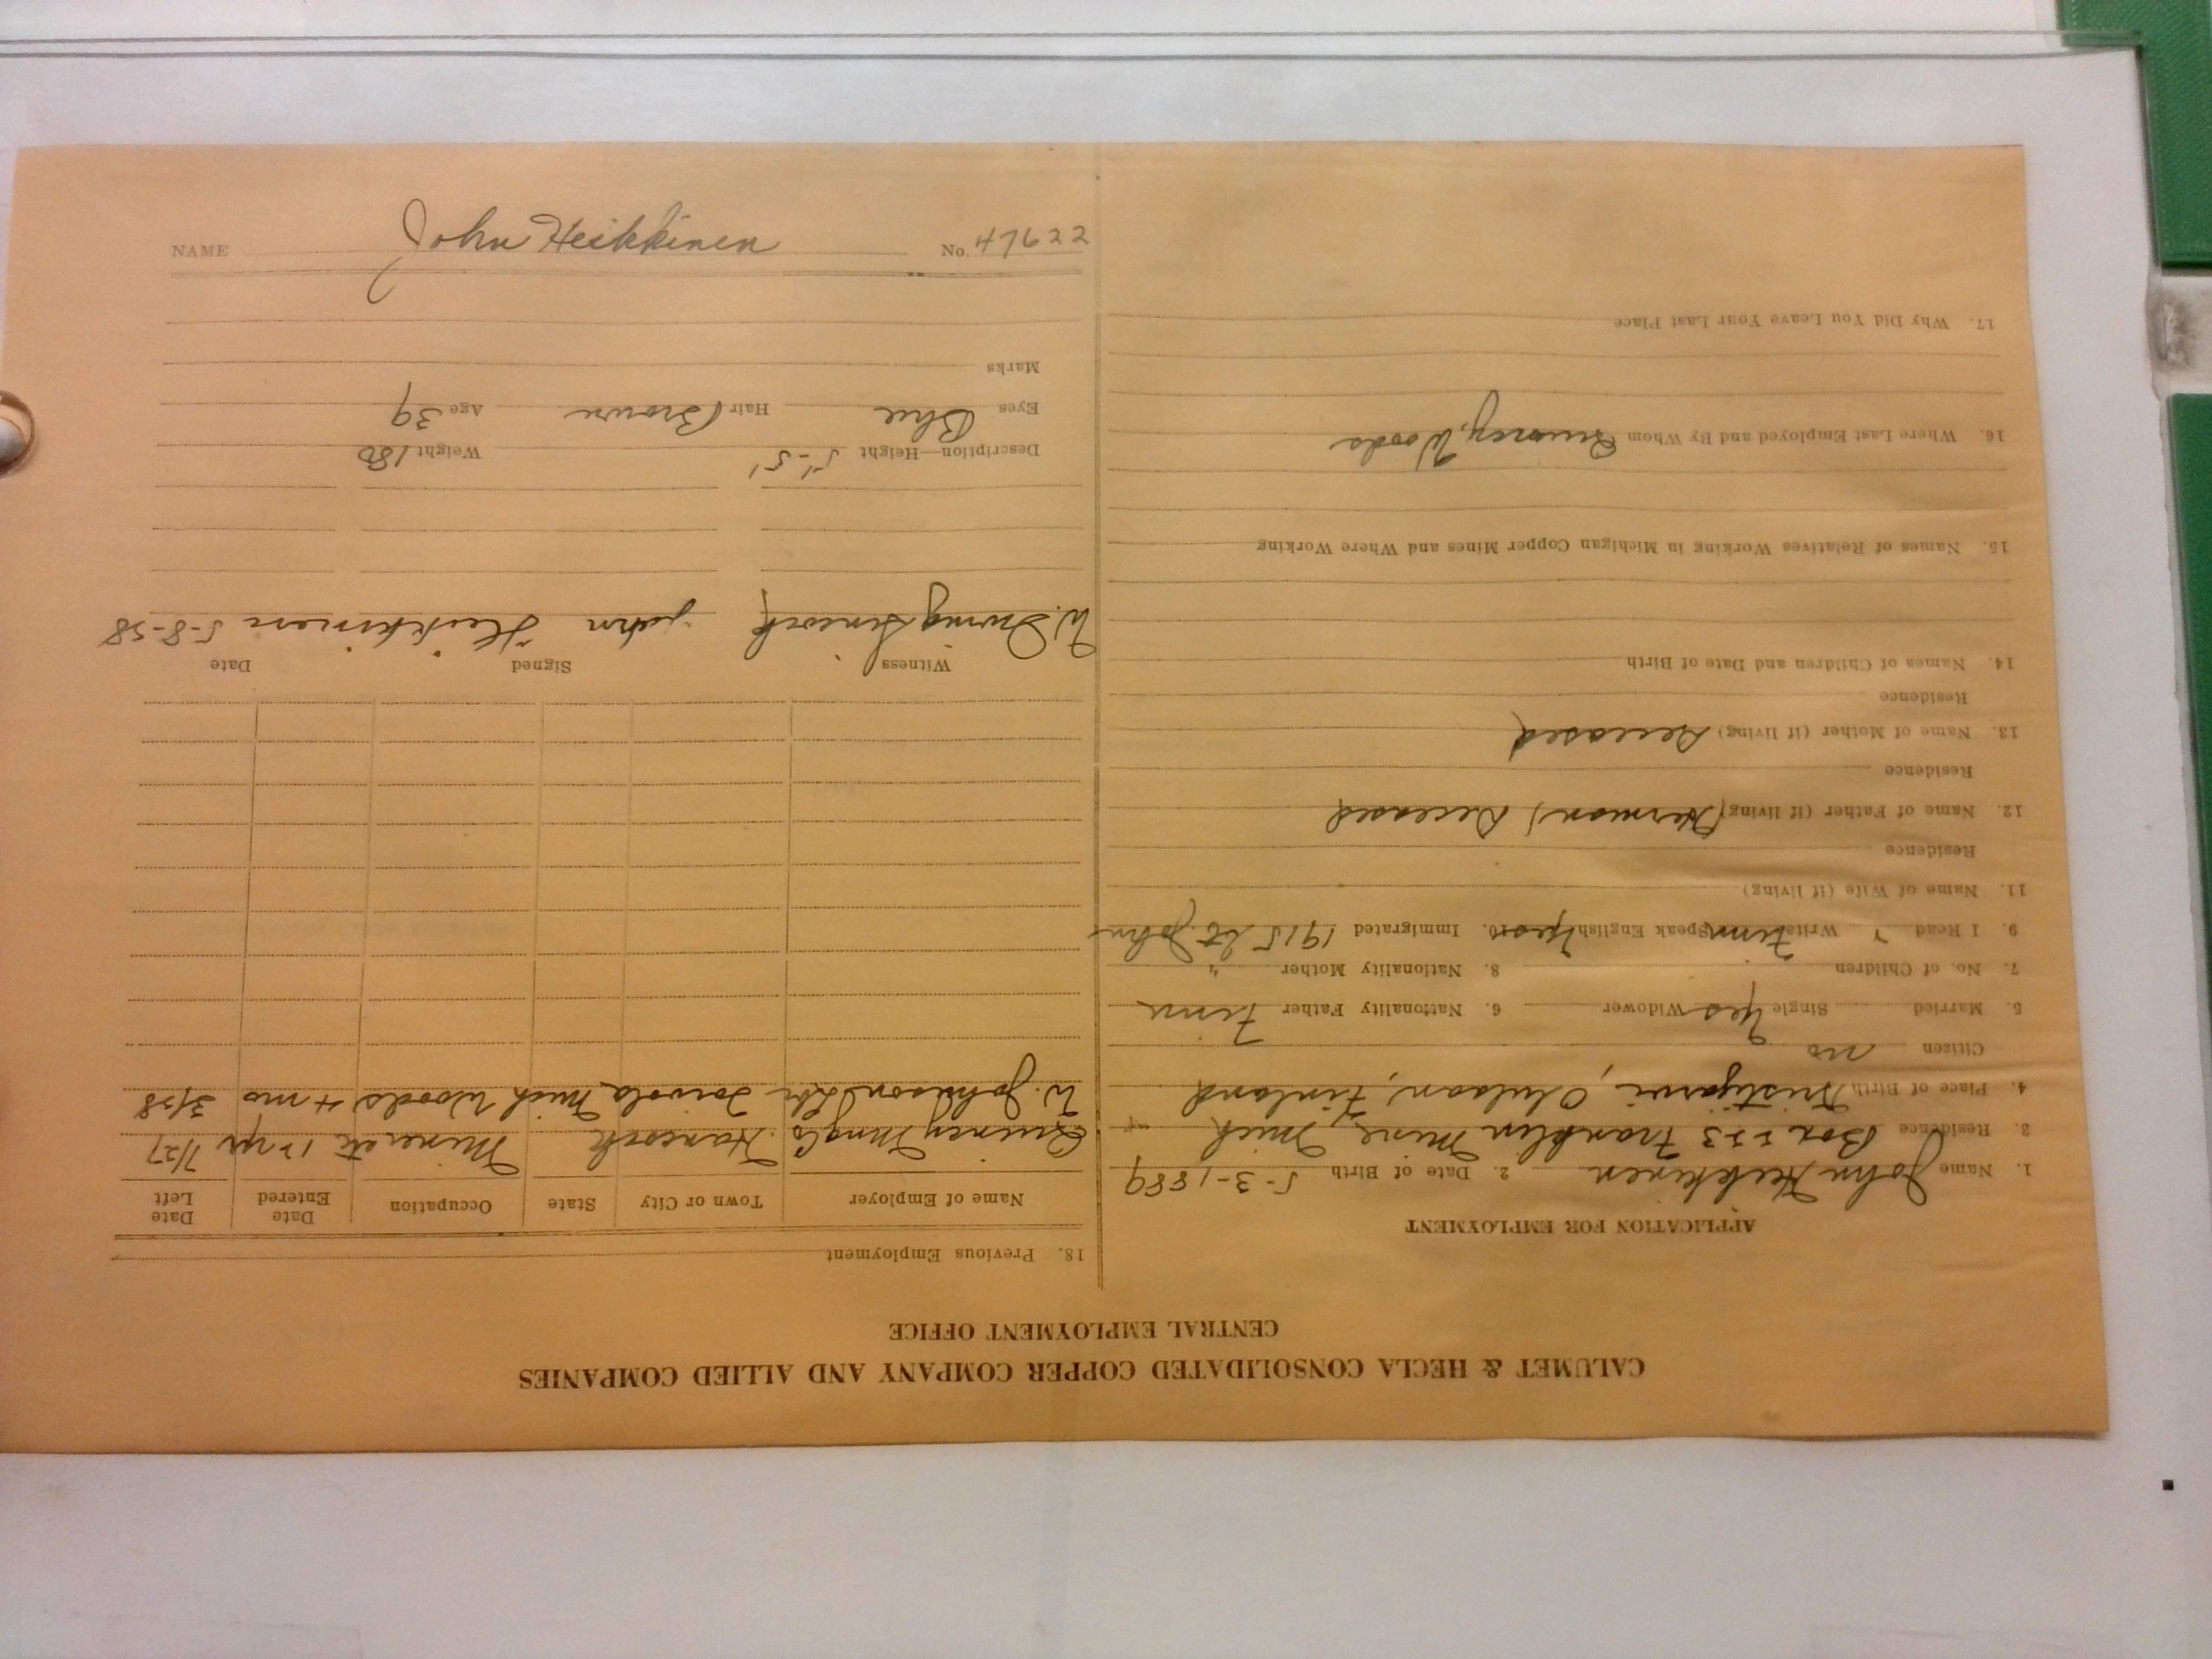 CALUMET & HECLA CONSOLIDATED COPPER COMPANY AND ALLIED COMPANIES
CENTRAL EMPLOYMENT OFFICE
APPLICATION FOR EMPLOYMENT
1. Name John Heikkinen 2. Date of Birth 5-3-1889
3. Residence Box 223 Franklin Mine, Mich
4. Place of Birth Oulaan, Finland
Citizen no
5. Married Single Yes Widower 6. Nationality Father Finn
7. No. of Children 8. Nationality Mother "
9. I Read Write Finn Speak English 10. Immigrated 1915 St. John
11. Name of Wife (if living)
Residence
12. Name of Father (if living) (Herman) Deceased
Residence
13. Name of Mother (if living) Deceased
Residence
14. Names of Children and Date of Birth
15. Names of Relatives Working in Michigan Copper Mines and Where Working
16. Where Last Employed and By Whom Quincy, Woods
17. Why Did You Leave Your Last Place
18. Previous Employment
Name of Employer Town or City State Occupation Date Entered Date Left
Quincy Mng Co. Hancock Miner etc 12 yrs 7/27
W. Johnson Toivola, Mich Woods 4 mo 3/28
Witness Signed Date
W. Irving John Heikkinen 5-8-28
Description—Height 5'-5" Weight 180
Eyes Blue Hair Brown Age 39
Marks
NAME John Heikkinen No. 47622